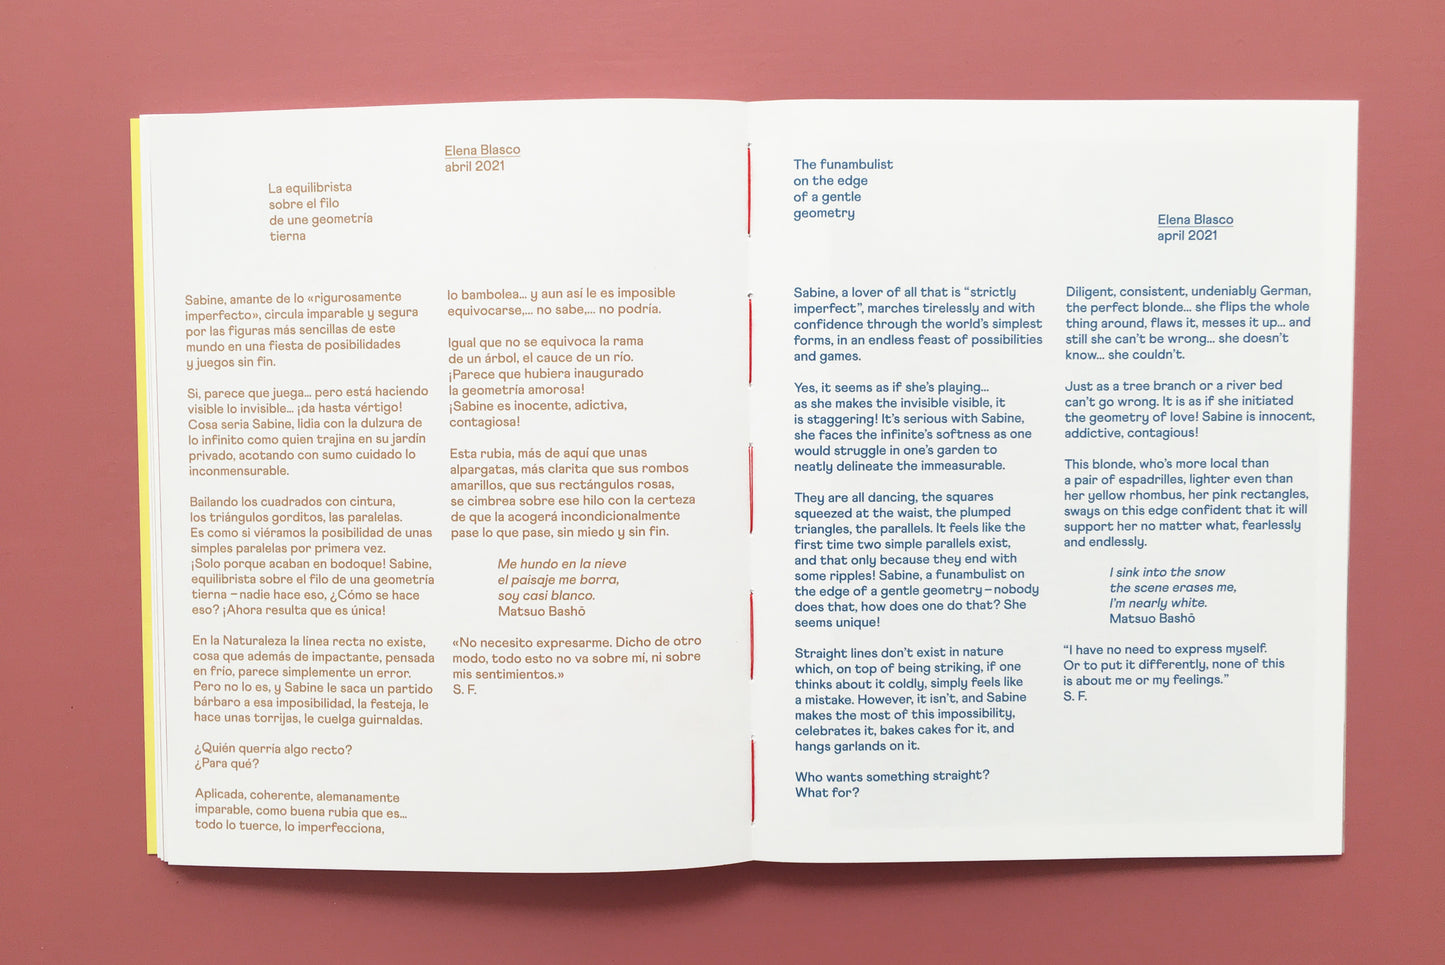 Elena Blasco
abril 2021
La equilibrista
sobre el filo
de une geometría
tierna
Sabine, amante de lo «rigurosamente
imperfecto», circula imparable y segura
por las figuras más sencillas de este
mundo en una fiesta de posibilidades
y juegos sin fin.
Si, parece que juega... pero está haciendo
visible lo invisible... ¡da hasta vértigo!
Cosa seria Sabine, lidia con la dulzura de
lo infinito como quien trajina en su jardín
privado, acotando con sumo cuidado lo
inconmensurable.
Bailando los cuadrados con cintura,
los triángulos gorditos, las paralelas.
Es como si viéramos la posibilidad de unas
simples paralelas por primera vez.
¡Solo porque acaban en bodoque! Sabine,
equilibrista sobre el filo de una geometría
tierna – nadie hace eso, ¿Cómo se hace
eso? ¡Ahora resulta que es única!
En la Naturaleza la línea recta no existe,
cosa que además de impactante, pensada
en frío, parece simplemente un error.
Pero no lo es, y Sabine le saca un partido
bárbaro a esa imposibilidad, la festeja, le
hace unas torrijas, le cuelga guirnaldas.
¿Quién querría algo recto?
¿Para qué?
Aplicada, coherente, alemanamente
imparable, como buena rubia que es...
todo lo tuerce, lo imperfecciona,
lo bambolea... y aun así le es imposible
equivocarse,... no sabe,... no podría.
Igual que no se equivoca la rama
de un árbol, el cauce de un río.
¡Parece que hubiera inaugurado
la geometría amorosa!
¡Sabine es inocente, adictiva,
contagiosa!
Esta rubia, más de aquí que unas
alpargatas, más clarita que sus rombos
amarillos, que sus rectángulos rosas,
se cimbrea sobre ese hilo con la certeza
de que la acogerá incondicionalmente
pase lo que pase, sin miedo y sin fin.
Me hundo en la nieve
el paisaje me borra,
soy casi blanco.
Matsuo Bashō
«No necesito expresarme. Dicho de otro
modo, todo esto no va sobre mí, ni sobre
mis sentimientos.»
S. F.
The funambulist
on the edge
of a gentle
geometry
Elena Blasco
april 2021
Sabine, a lover of all that is “strictly
imperfect”, marches tirelessly and with
confidence through the world’s simplest
forms, in an endless feast of possibilities
and games.
Yes, it seems as if she’s playing...
as she makes the invisible visible, it
is staggering! It’s serious with Sabine,
she faces the infinite’s softness as one
would struggle in one’s garden to
neatly delineate the immeasurable.
They are all dancing, the squares
squeezed at the waist, the plumped
triangles, the parallels. It feels like the
first time two simple parallels exist,
and that only because they end with
some ripples! Sabine, a funambulist on
the edge of a gentle geometry – nobody
does that, how does one do that? She
seems unique!
Straight lines don’t exist in nature
which, on top of being striking, if one
thinks about it coldly, simply feels like
a mistake. However, it isn’t, and Sabine
makes the most of this impossibility,
celebrates it, bakes cakes for it, and
hangs garlands on it.
Who wants something straight?
What for?
Diligent, consistent, undeniably German,
the perfect blonde... she flips the whole
thing around, flaws it, messes it up... and
still she can’t be wrong... she doesn’t
know... she couldn’t.
Just as a tree branch or a river bed
can’t go wrong. It is as if she initiated
the geometry of love! Sabine is innocent,
addictive, contagious!
This blonde, who’s more local than
a pair of espadrilles, lighter even than
her yellow rhombus, her pink rectangles,
sways on this edge confident that it will
support her no matter what, fearlessly
and endlessly.
I sink into the snow
the scene erases me,
I’m nearly white.
Matsuo Bashō
“I have no need to express myself.
Or to put it differently, none of this
is about me or my feelings.”
S. F.